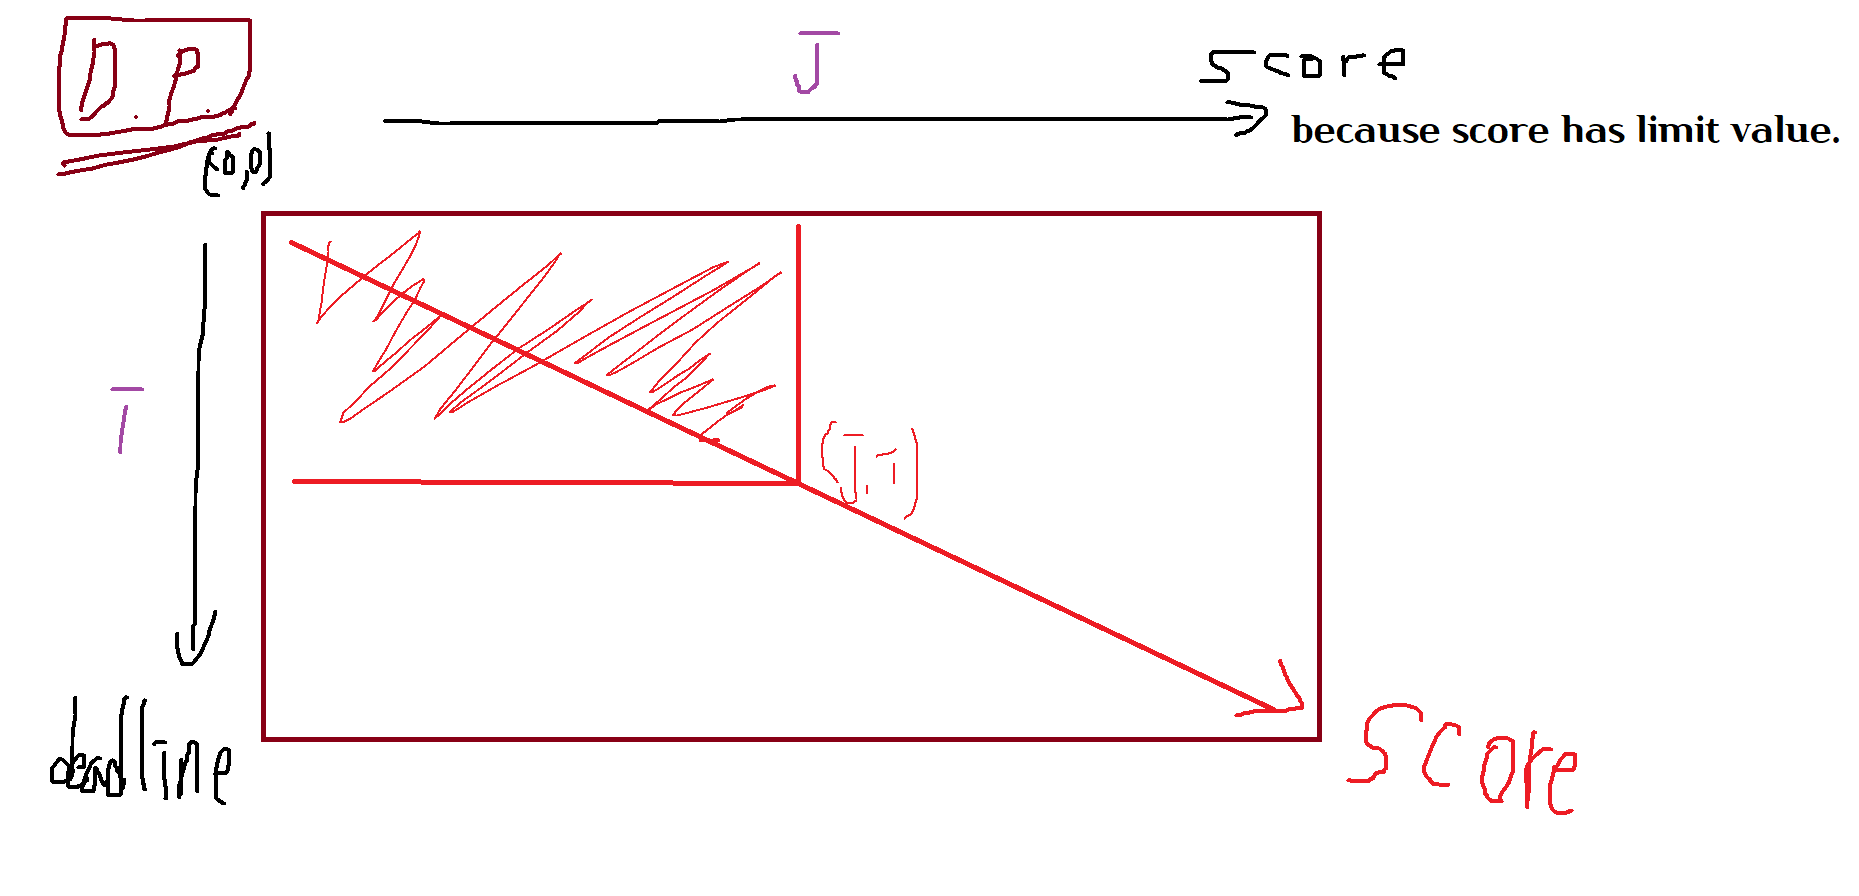 D.P.
J
score
because score has limit value.
(0,0)
I
(J,I)
deadline
score